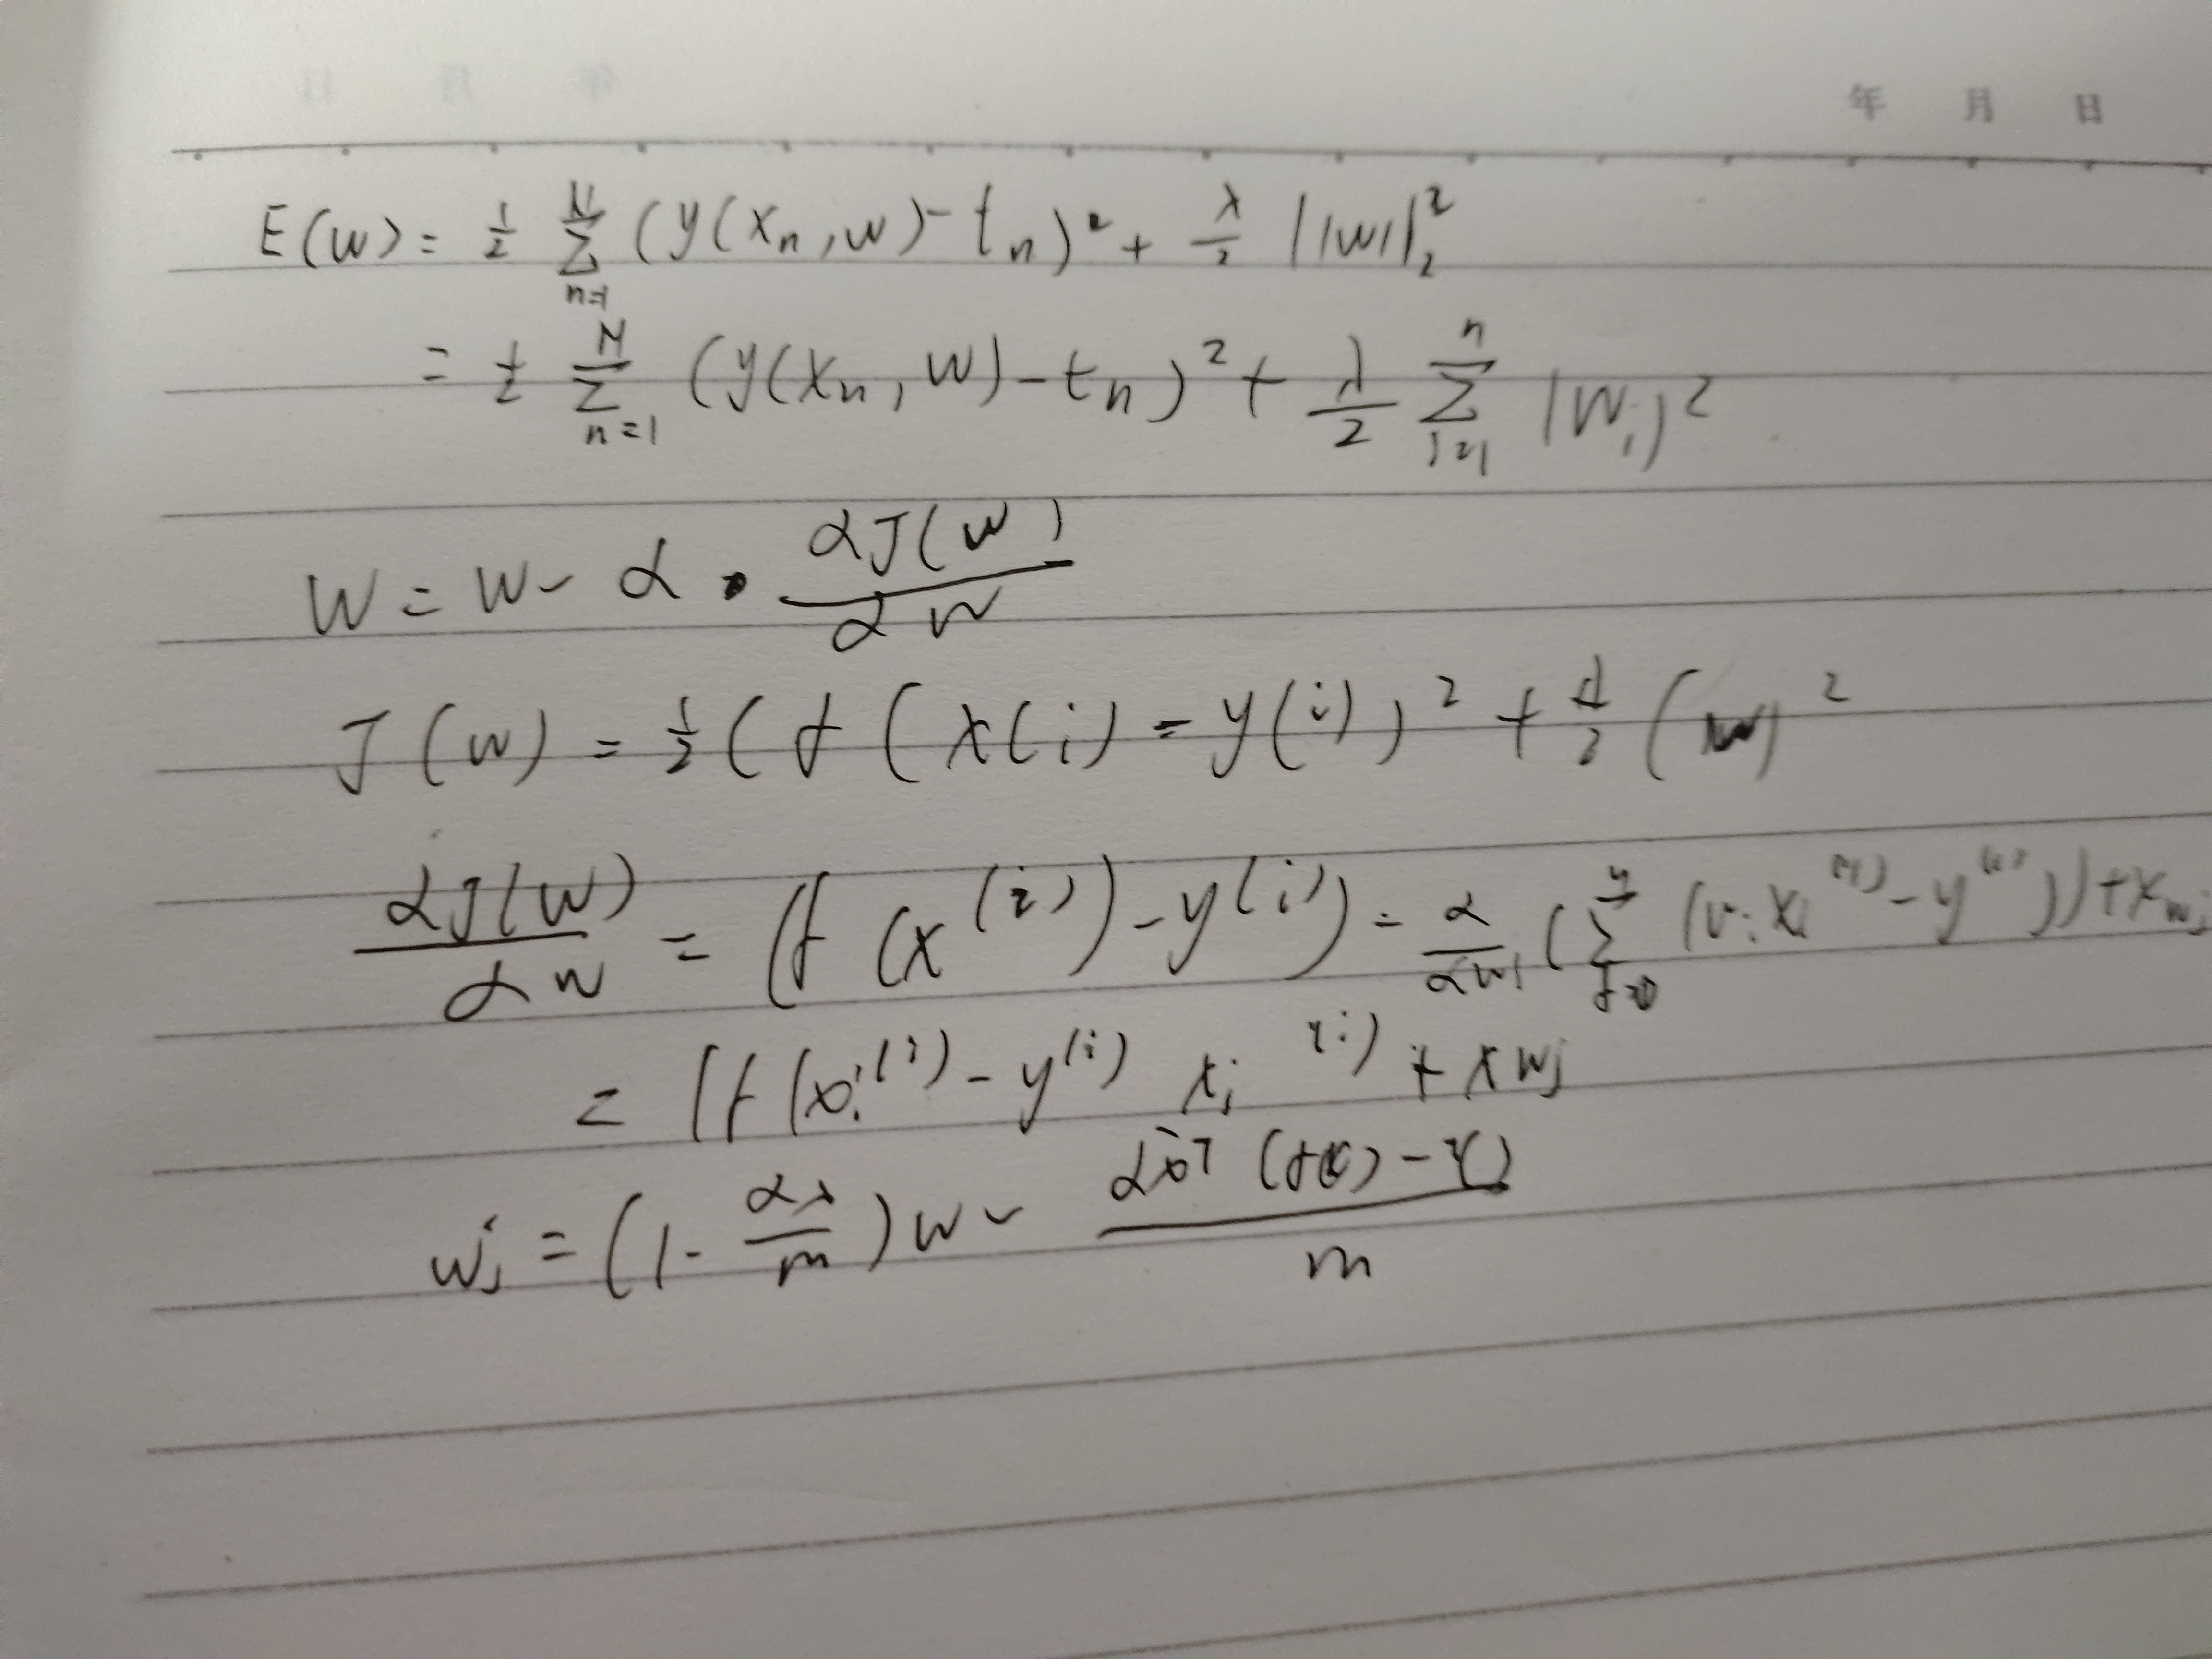 年 月 日
E(w) = 1/2 Σ_{n=1}^{N} (y(x_n, w) - t_n)² + λ/2 ||w||₂²
= 1/2 Σ_{n=1}^{N} (y(x_n, w) - t_n)² + λ/2 Σ_{j=1}^{n} |w_j|²
w = w - α · αJ(w)/αw
J(w) = 1/2 (f(x(i) - y(i))² + λ/2 (w)²
αJ(w)/αw = (f(x^(i)) - y^(i)) - α/αw_j (Σ_{j=0}^{n} (v_i x_i^(i) - y^(i))) + x_{w_j}
= (f(x_i^(i)) - y^(i) x_j^(i) + x w_j
w_j = (1 - αλ/m) w - α x^T (f(x) - y) / m